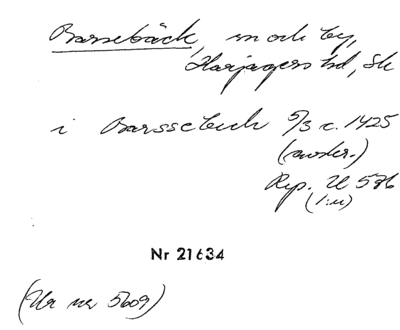 Barsebäck, sn och by,
Harjagers hd, Sk
i Barssebech 5/3 c. 1425
(avskr.)
Rep. II 576
(1:u)
Nr 21634
(Ur nr 5609)